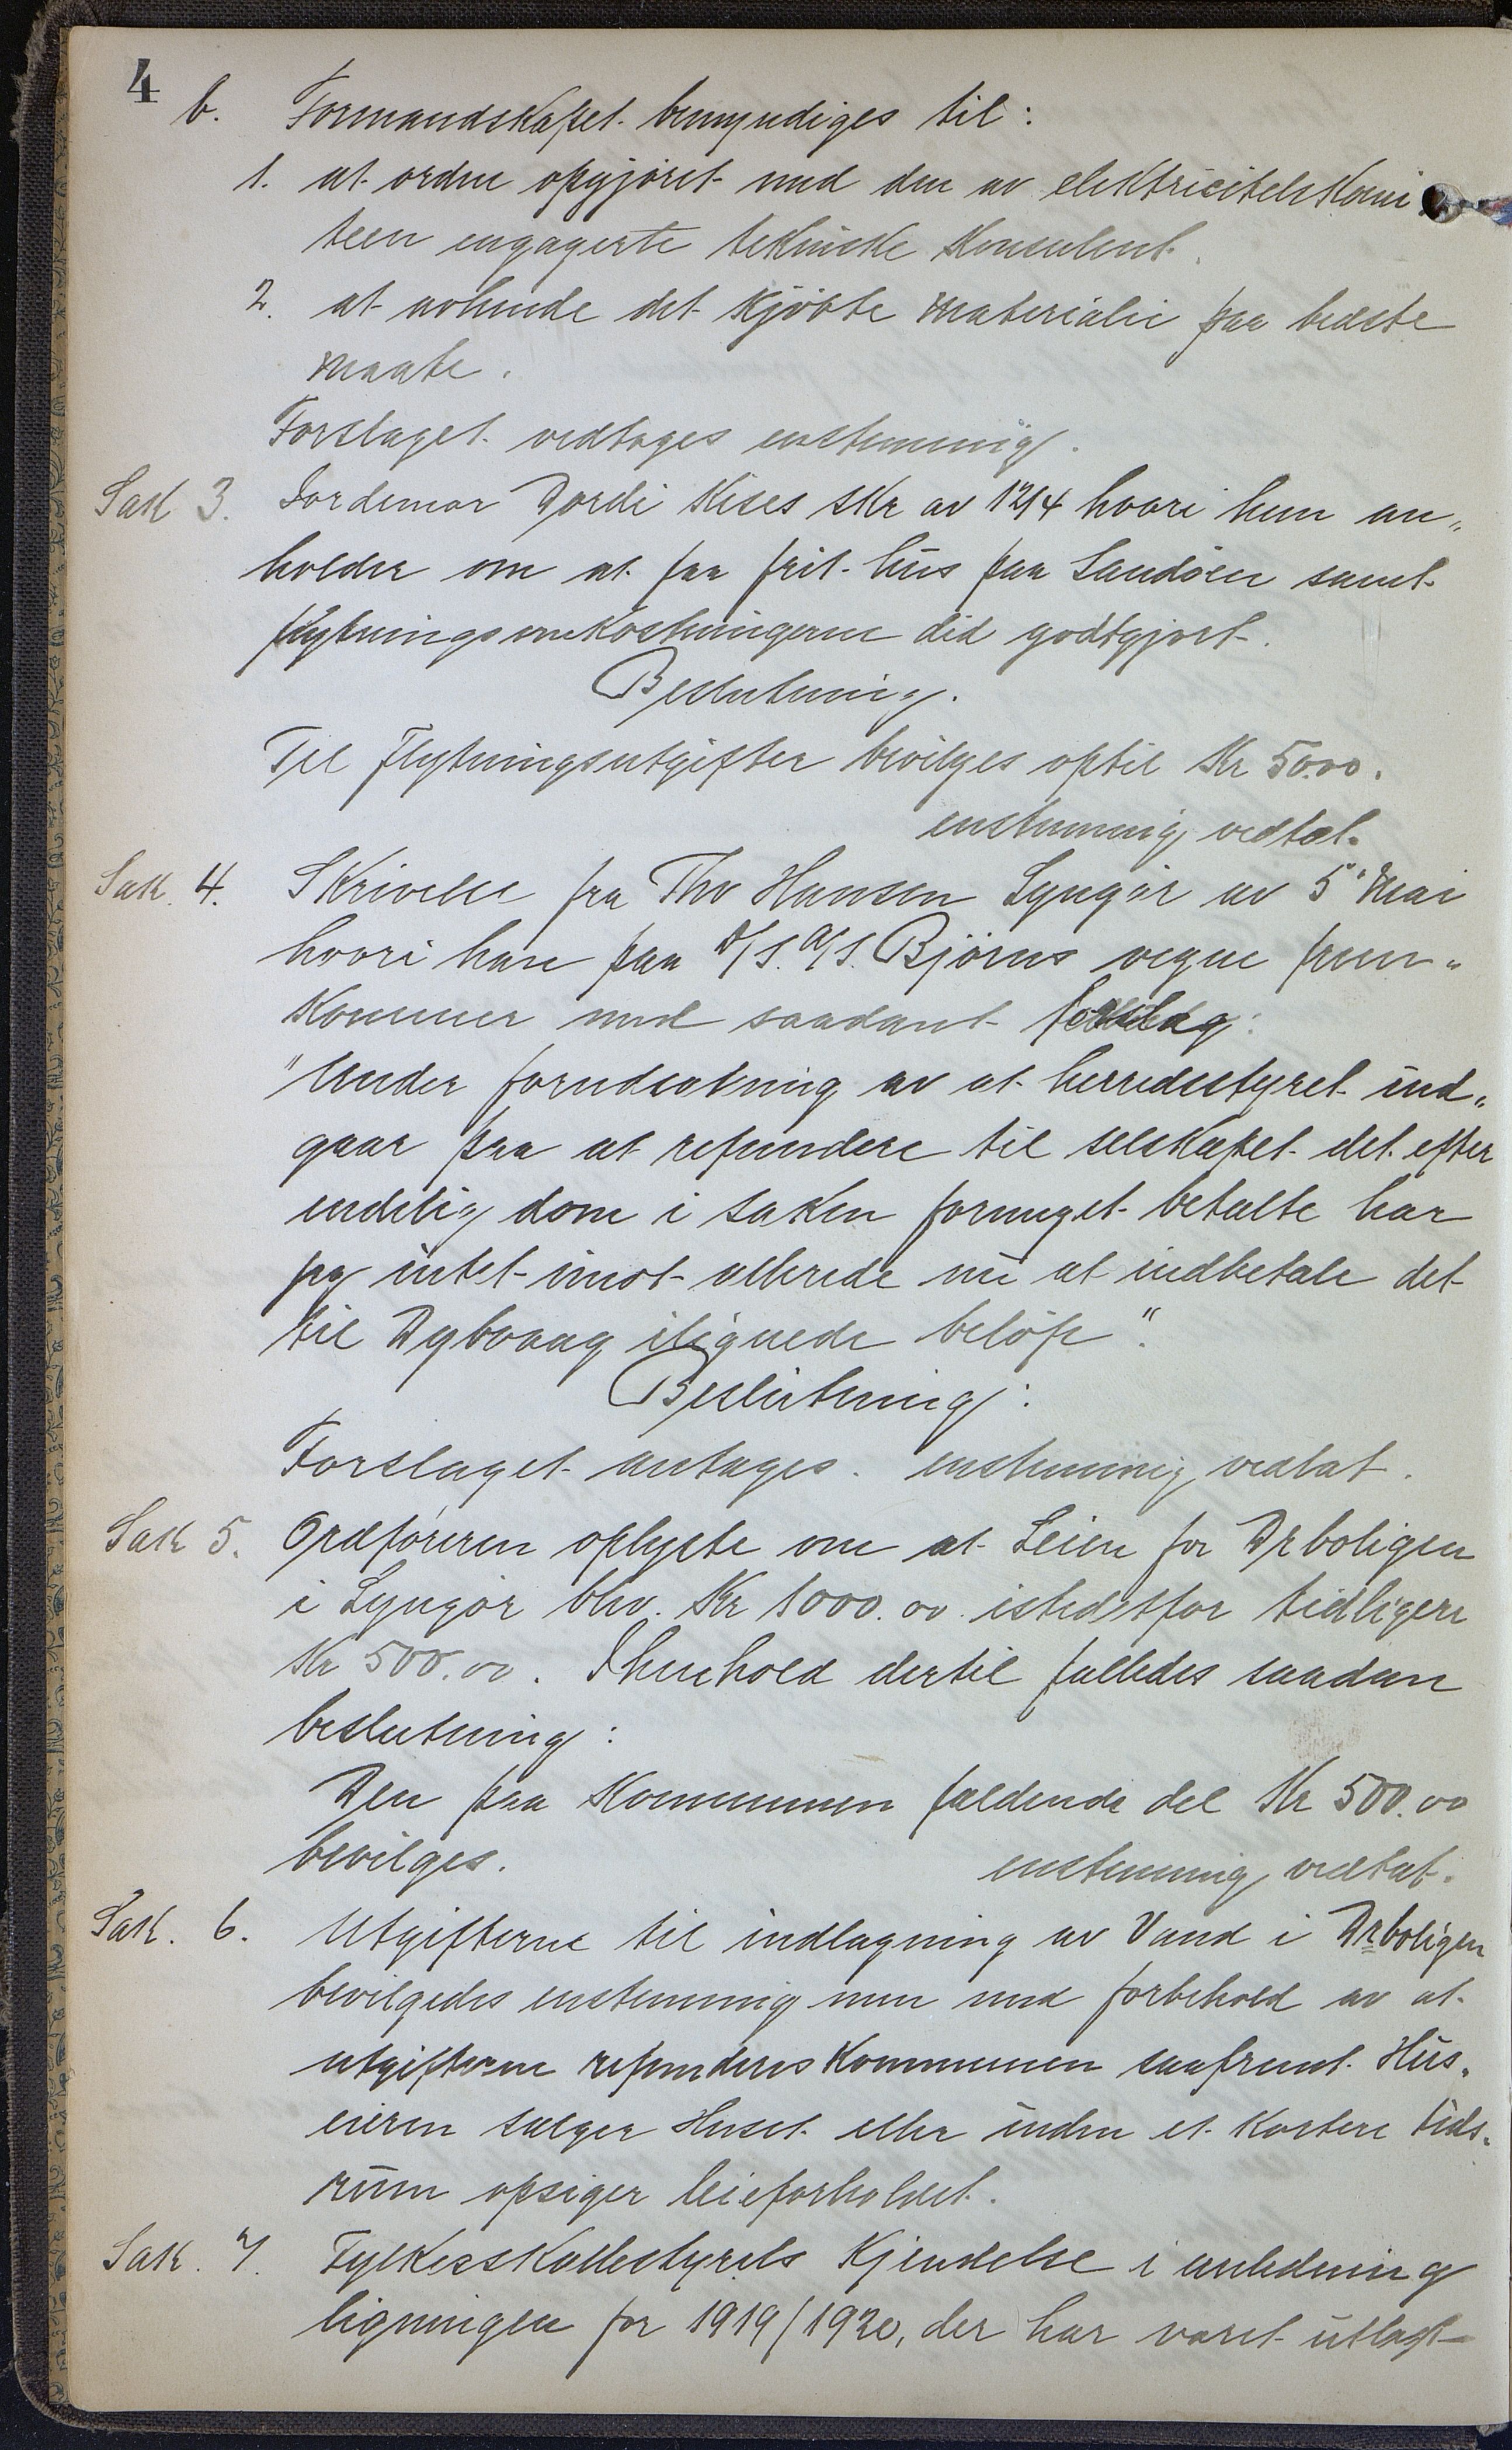 4
b. Formandskapet bemyndiges til:
1. at ordne opgjöret med den av elektricitetskomi
teen engagerte tekniske Konsulent.
2. at avhende det kjöbte materialie paa bedste
maate.
Forslaget vedtages enstemmig.
Sak 3. Jordemor Dordi Kises skr av 12/4 hvori hun an„
holder om at faa frit hus paa Sandöen samt
flytningsomkostningerne did godtgjort.
Beslutning.
Til Flytningsutgifter bevilges optil Kr 50.00.
enstemmig vedtat.
Sak. 4. Skrivelse fra Thv Hansen Lyngör av 5' Mai
hvori han paa D/S. A/S. Björns vegne frem„
kommer med saadant forslag:
"Under forudsætning av at herredsstyret ind„
gaar paa at refundere til selskapet det efter
endelig dom i saken formeget betalte har
jeg intet imot allerede nu at indbetale det
til Dybvaag ilignede belöp".
Beslutning:
Forslaget antages. enstemmig vedtat.
Sak 5. Ordföreren oplyste om at Leien for Drboligen
i Lyngör blev Kr 1000.00 istedetfor tidligere
Kr 500.00. I henhold dertil fattedes saadan
beslutning:
Den paa Kommunen faldende del Kr 500.00
bevilges. enstemmig vedtat.
Sak. 6. Utgifterne til indlægning av Vand i Drboligen
bevilgedes enstemmig men med forbehold av at
utgifterne refunderes Kommunen saafremt Hus„
eieren sælger Huset eller inden et kortere tids„
rum opsiger leieforholdet.
Sak. 7. Fylkesskattestyrets Kjendelse i anledning
ligningen for 1919/1920, der har været utlagt